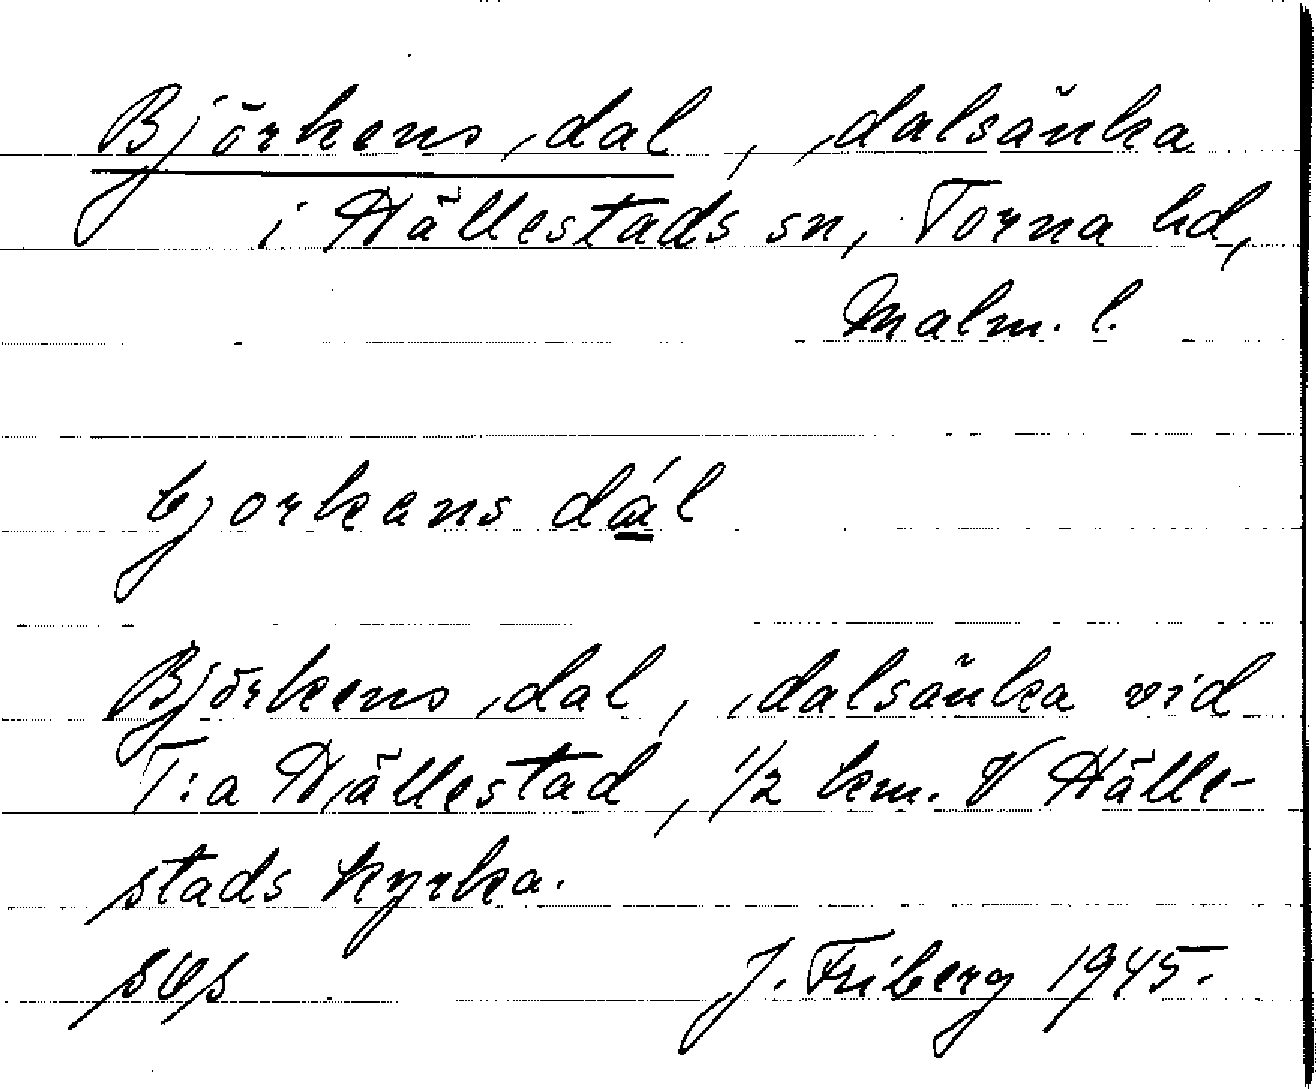 Björkens dal, dalsänka
i Hällestads sn, Torna hd,
Malm. l.
bjorkans dál
Björkens dal, dalsänka vid
T:a Hällestad, 1/2 km. V Hälle-
stads kyrka.
J. Friberg 1945.